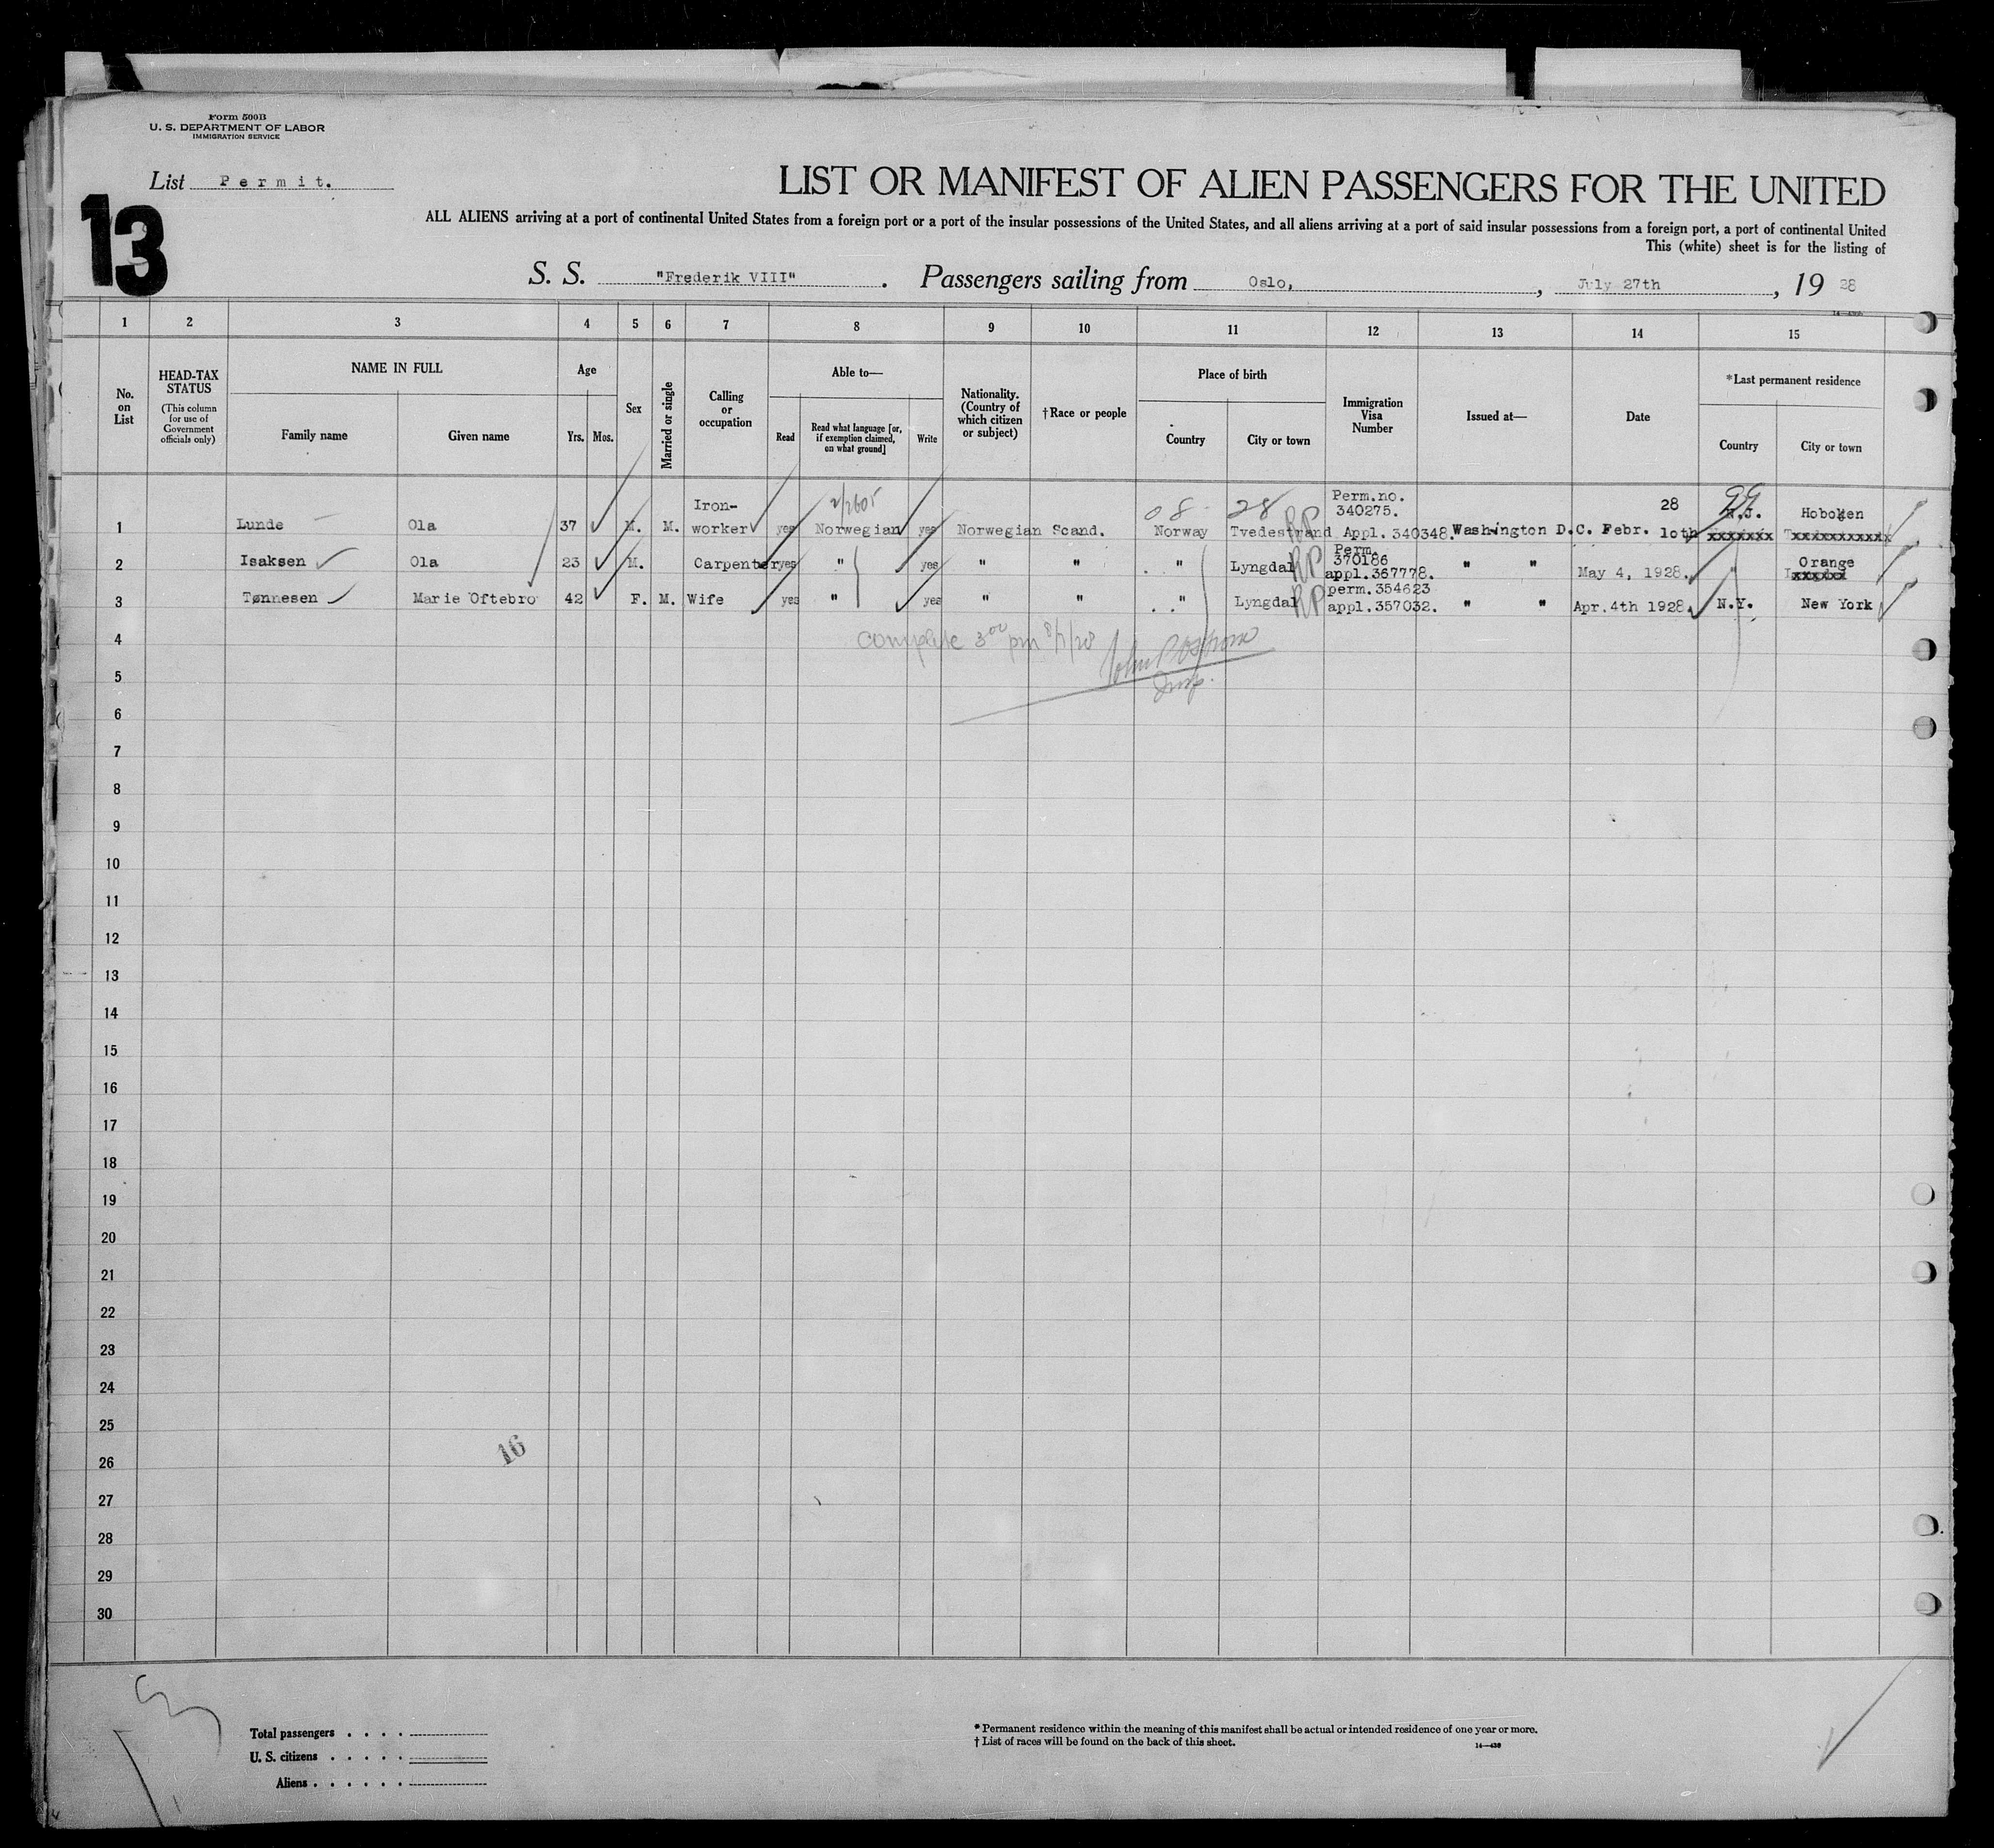 Form 500B
U. S. DEPARTMENT OF LABOR
IMMIGRATION SERVICE
List Permit.
13
LIST OR MANIFEST OF ALIEN PASSENGERS FOR THE UNITED
ALL ALIENS arriving at a port of continental United States from a foreign port or a port of the insular possessions of the United States, and all aliens arriving at a port of said insular possessions from a foreign port, a port of continental United
This (white) sheet is for the listing of
S. S. "Frederik VIII". Passengers sailing from Oslo, , July 27th , 19 28
1 2 3 4 5 6 7 8 9 10 11 12 13 14 15
No. on List
HEAD-TAX STATUS
(This column for use of Government officials only)
NAME IN FULL
Family name Given name
Age
Yrs. Mos.
Sex
Married or single
Calling or occupation
Able to—
Read
Read what language [or, if exemption claimed, on what ground]
Write
Nationality. (Country of which citizen or subject)
†Race or people
Place of birth
Country City or town
Immigration Visa Number
Issued at—
Date
*Last permanent residence
Country City or town
2/2605 08 28 99
1 Lunde Ola 37 M. M. Iron-worker yes Norwegian yes Norwegian Scand. Norway Tvedestrand RP Perm.no. 340275. Appl. 340348. Washington D.C. Febr. 10th 28 N.J. xxxxxxx Hoboken xxxxxxxxxx
2 Isaksen Ola 23 M. Carpenter yes " yes " " " Lyngdal RP Perm. 370186 appl.367778. " " May 4, 1928. Orange xxxxxx
3 Tønnesen Marie Oftebro 42 F. M. Wife yes " yes " " " Lyngdal RP perm.354623 appl.357032. " " Apr.4th 1928. N.Y. New York
4 Complete 3 00 pm 8/7/28
5 Insp.
6
7
8
9
10
11
12
13
14
15
16
17
18
19
20
21
22
23
24
25
16
26
27
28
29
30
Total passengers . . . .
U. S. citizens . . . . .
Aliens . . . . . .
* Permanent residence within the meaning of this manifest shall be actual or intended residence of one year or more.
† List of races will be found on the back of this sheet.
14—430